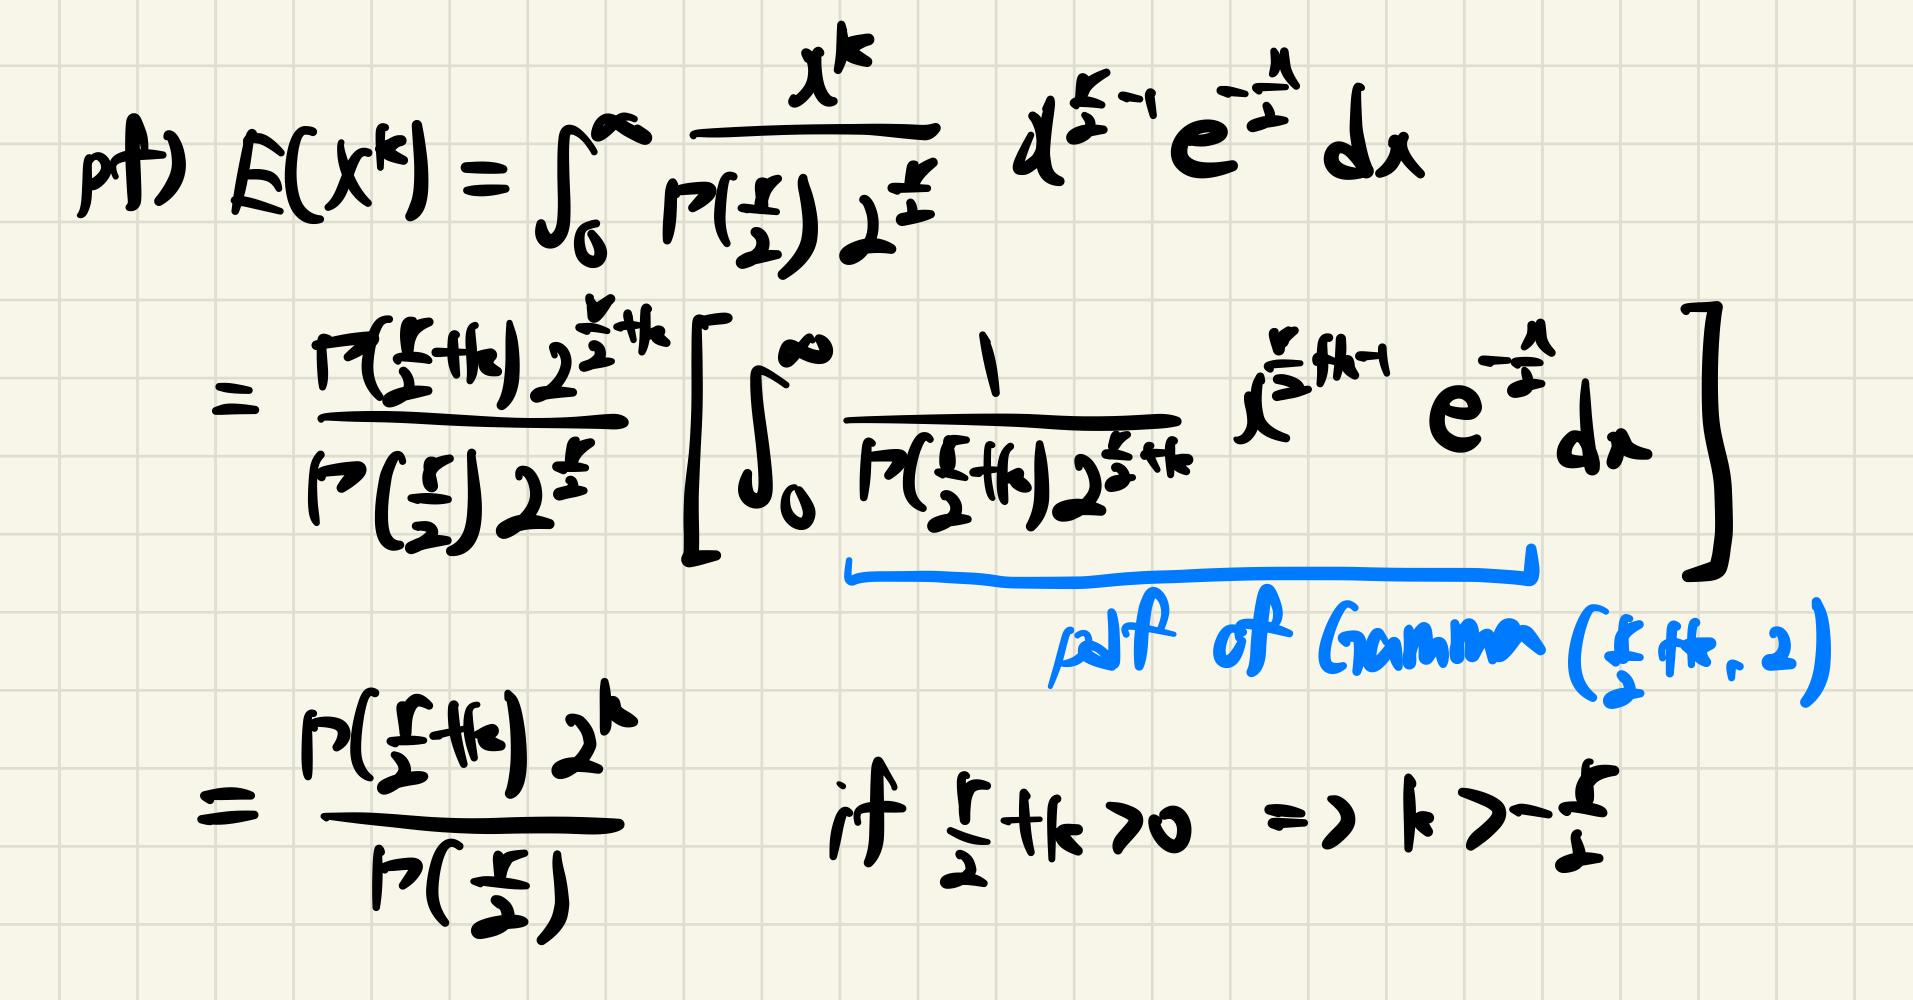 pf) E(X^k) = ∫_0^∞ \frac{x^k}{Γ(\frac{r}{2}) 2^{\frac{r}{2}}} x^{\frac{r}{2}-1} e^{-\frac{x}{2}} dx
= \frac{Γ(\frac{r}{2}+k) 2^{\frac{r}{2}+k}}{Γ(\frac{r}{2}) 2^{\frac{r}{2}}} [ ∫_0^∞ \frac{1}{Γ(\frac{r}{2}+k) 2^{\frac{r}{2}+k}} x^{\frac{r}{2}+k-1} e^{-\frac{x}{2}} dx ]
pdf of Gamma (\frac{r}{2}+k, 2)
= \frac{Γ(\frac{r}{2}+k) 2^k}{Γ(\frac{r}{2})} if \frac{r}{2}+k>0 => k>-\frac{r}{2}